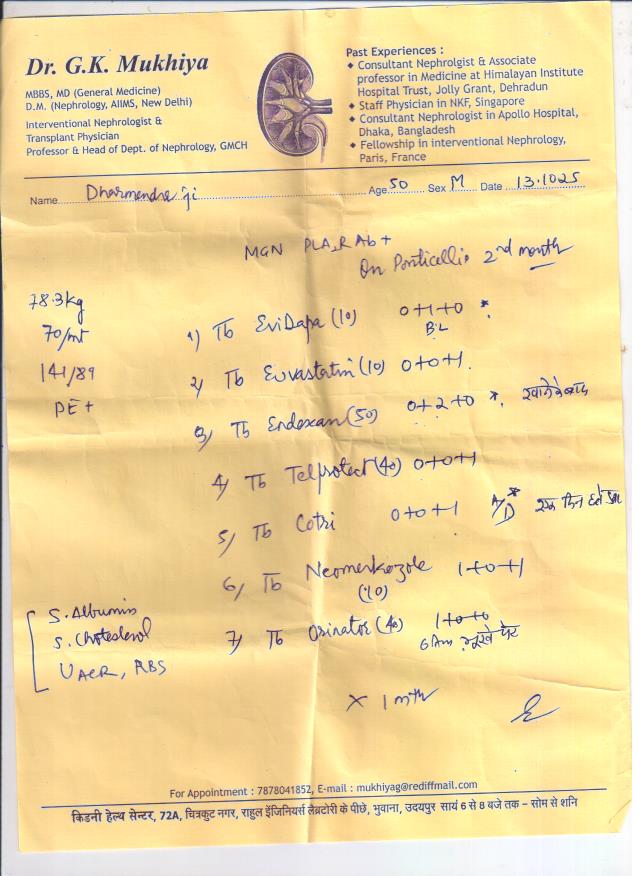 Dr. G.K. Mukhiya
MBBS, MD (General Medicine)
D.M. (Nephrology, AIIMS, New Delhi)
Interventional Nephrologist &
Transplant Physician
Professor & Head of Dept. of Nephrology, GMCH
Past Experiences :
◆ Consultant Nephrolgist & Associate
professor in Medicine at Himalayan Institute
Hospital Trust, Jolly Grant, Dehradun
◆ Staff Physician in NKF, Singapore
◆ Consultant Nephrologist in Apollo Hospital,
Dhaka, Bangladesh
◆ Fellowship in interventional Nephrology,
Paris, France
Name Dharmendra ji Age 50 Sex M Date 13.1025
MGN PLA2R Ab +
On Ponticelli 2nd month
78.3kg
70/mt
141/89
PE +
1) Tb EviDapa (10) 0+1+0 *
BL
2) Tb Euvastatin (10) 0+0+1.
3) Tb Endoxan (50) 0+2+0 *. खाने के बाद
4) Tb Telprotect (40) 0+0+1
5) Tb Cotri 0+0+1 A/D * एक दिन
6) Tb Neomerkozole 1+0+1
(10)
7) Tb (40) 1+0+0
6 Am भूखे पेट
S. Albumin
S. Cholesterol
UACR, RBS
× 1 mth
For Appointment : 7878041852, E-mail : mukhiyag@rediffmail.com
किडनी हेल्थ सेन्टर, 72A, चित्रकुट नगर, राहुल इंजिनियर्स लैब्रटोरी के पीछे, भुवाना, उदयपुर सायं 6 से 8 बजे तक – सोम से शनि